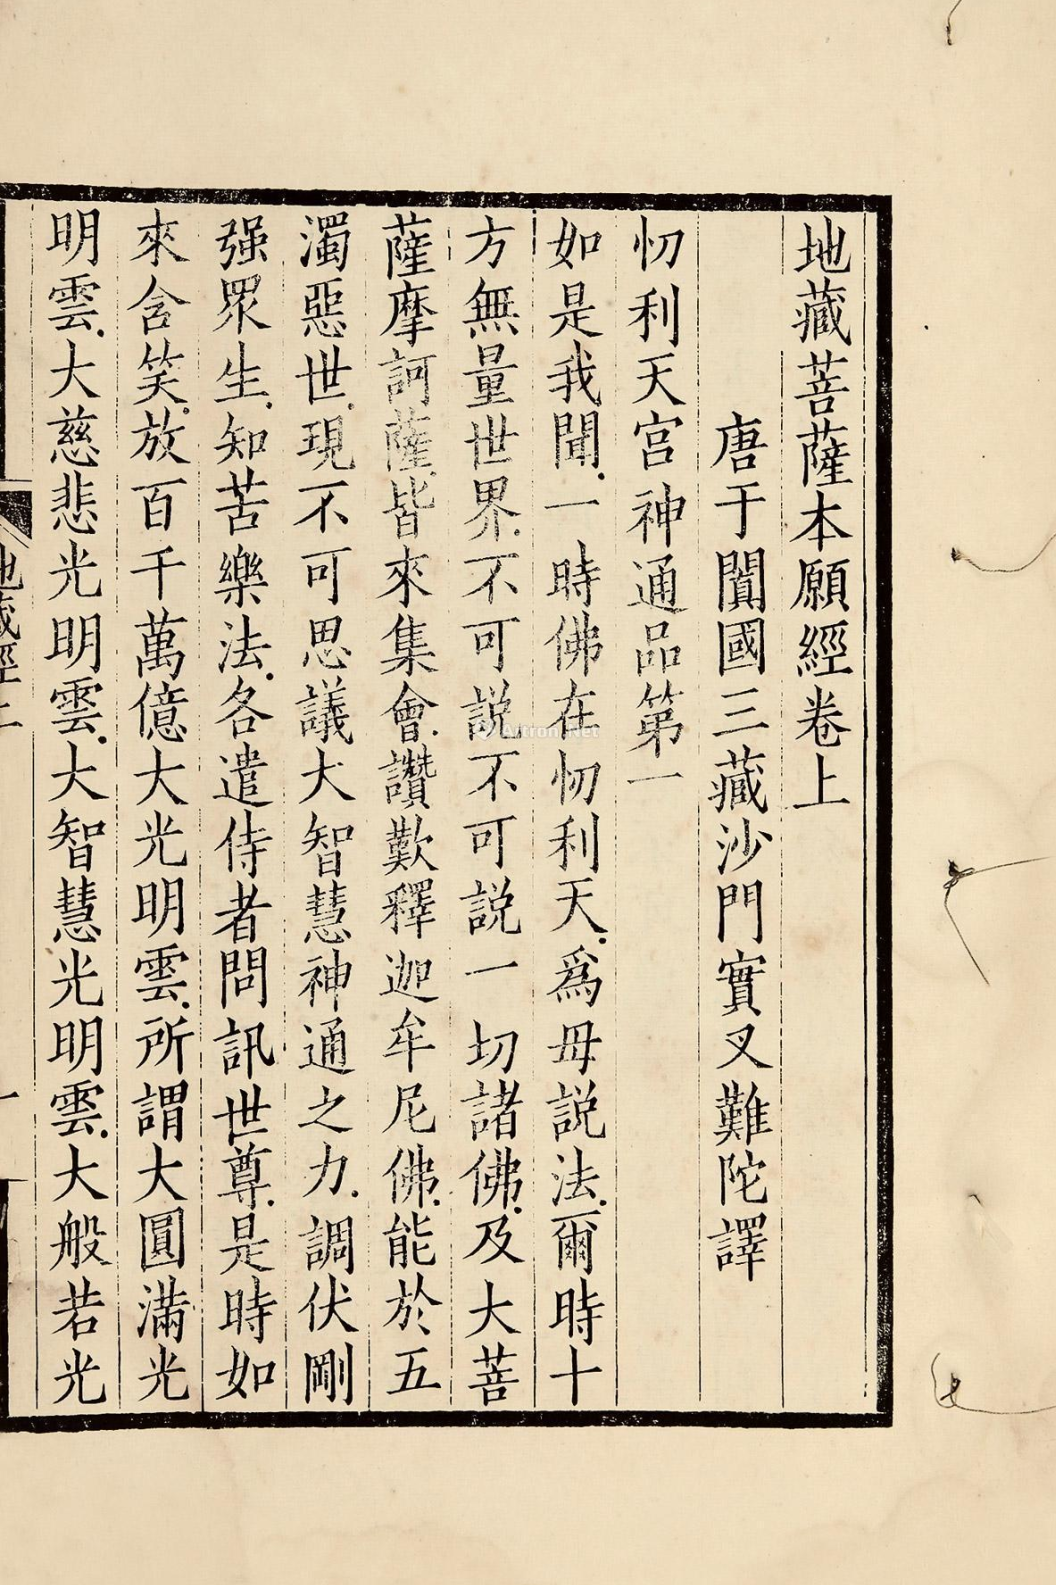 地藏菩薩本願經卷上
唐于闐國三藏沙門實叉難陀譯
忉利天宫神通品第一
如是我聞.一時佛在忉利天.爲毋説法.爾時十
方無量世界.不可説不可説一切諸佛.及大菩
薩摩訶薩.皆來集會.讚歎釋迦牟尼佛.能於五
濁惡世.現不可思議大智慧神通之力.調伏剛
强眾生.知苦樂法.各遣侍者問訊世尊.是時如
來含笑.放百千萬億大光明雲.所謂大圓滿光
明雲.大慈悲光明雲.大智慧光明雲.大般若光
地藏經上
一
Artron.Net